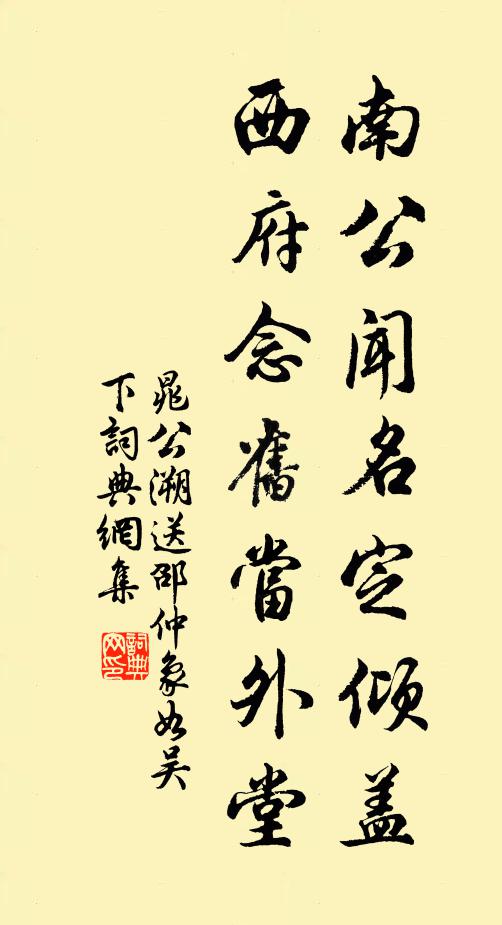 南公闻名定倾盖
西府念舊當外堂
晁公溯送邵仲象如吴
下詞典網集
詞典网印